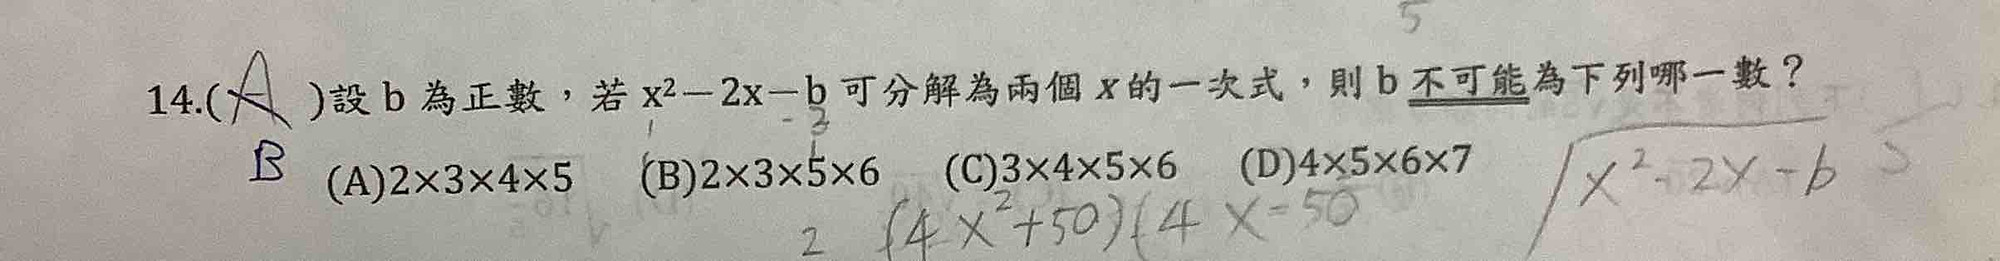 5
14.(A)設 b 為正數，若 x²－2x－b 可分解為兩個 x 的一次式，則 b 不可能為下列哪一數？
B (A)2×3×4×5 (B)2×3×5×6 (C)3×4×5×6 (D)4×5×6×7
x²-2x-b
2 (4x²+50)(4x-50